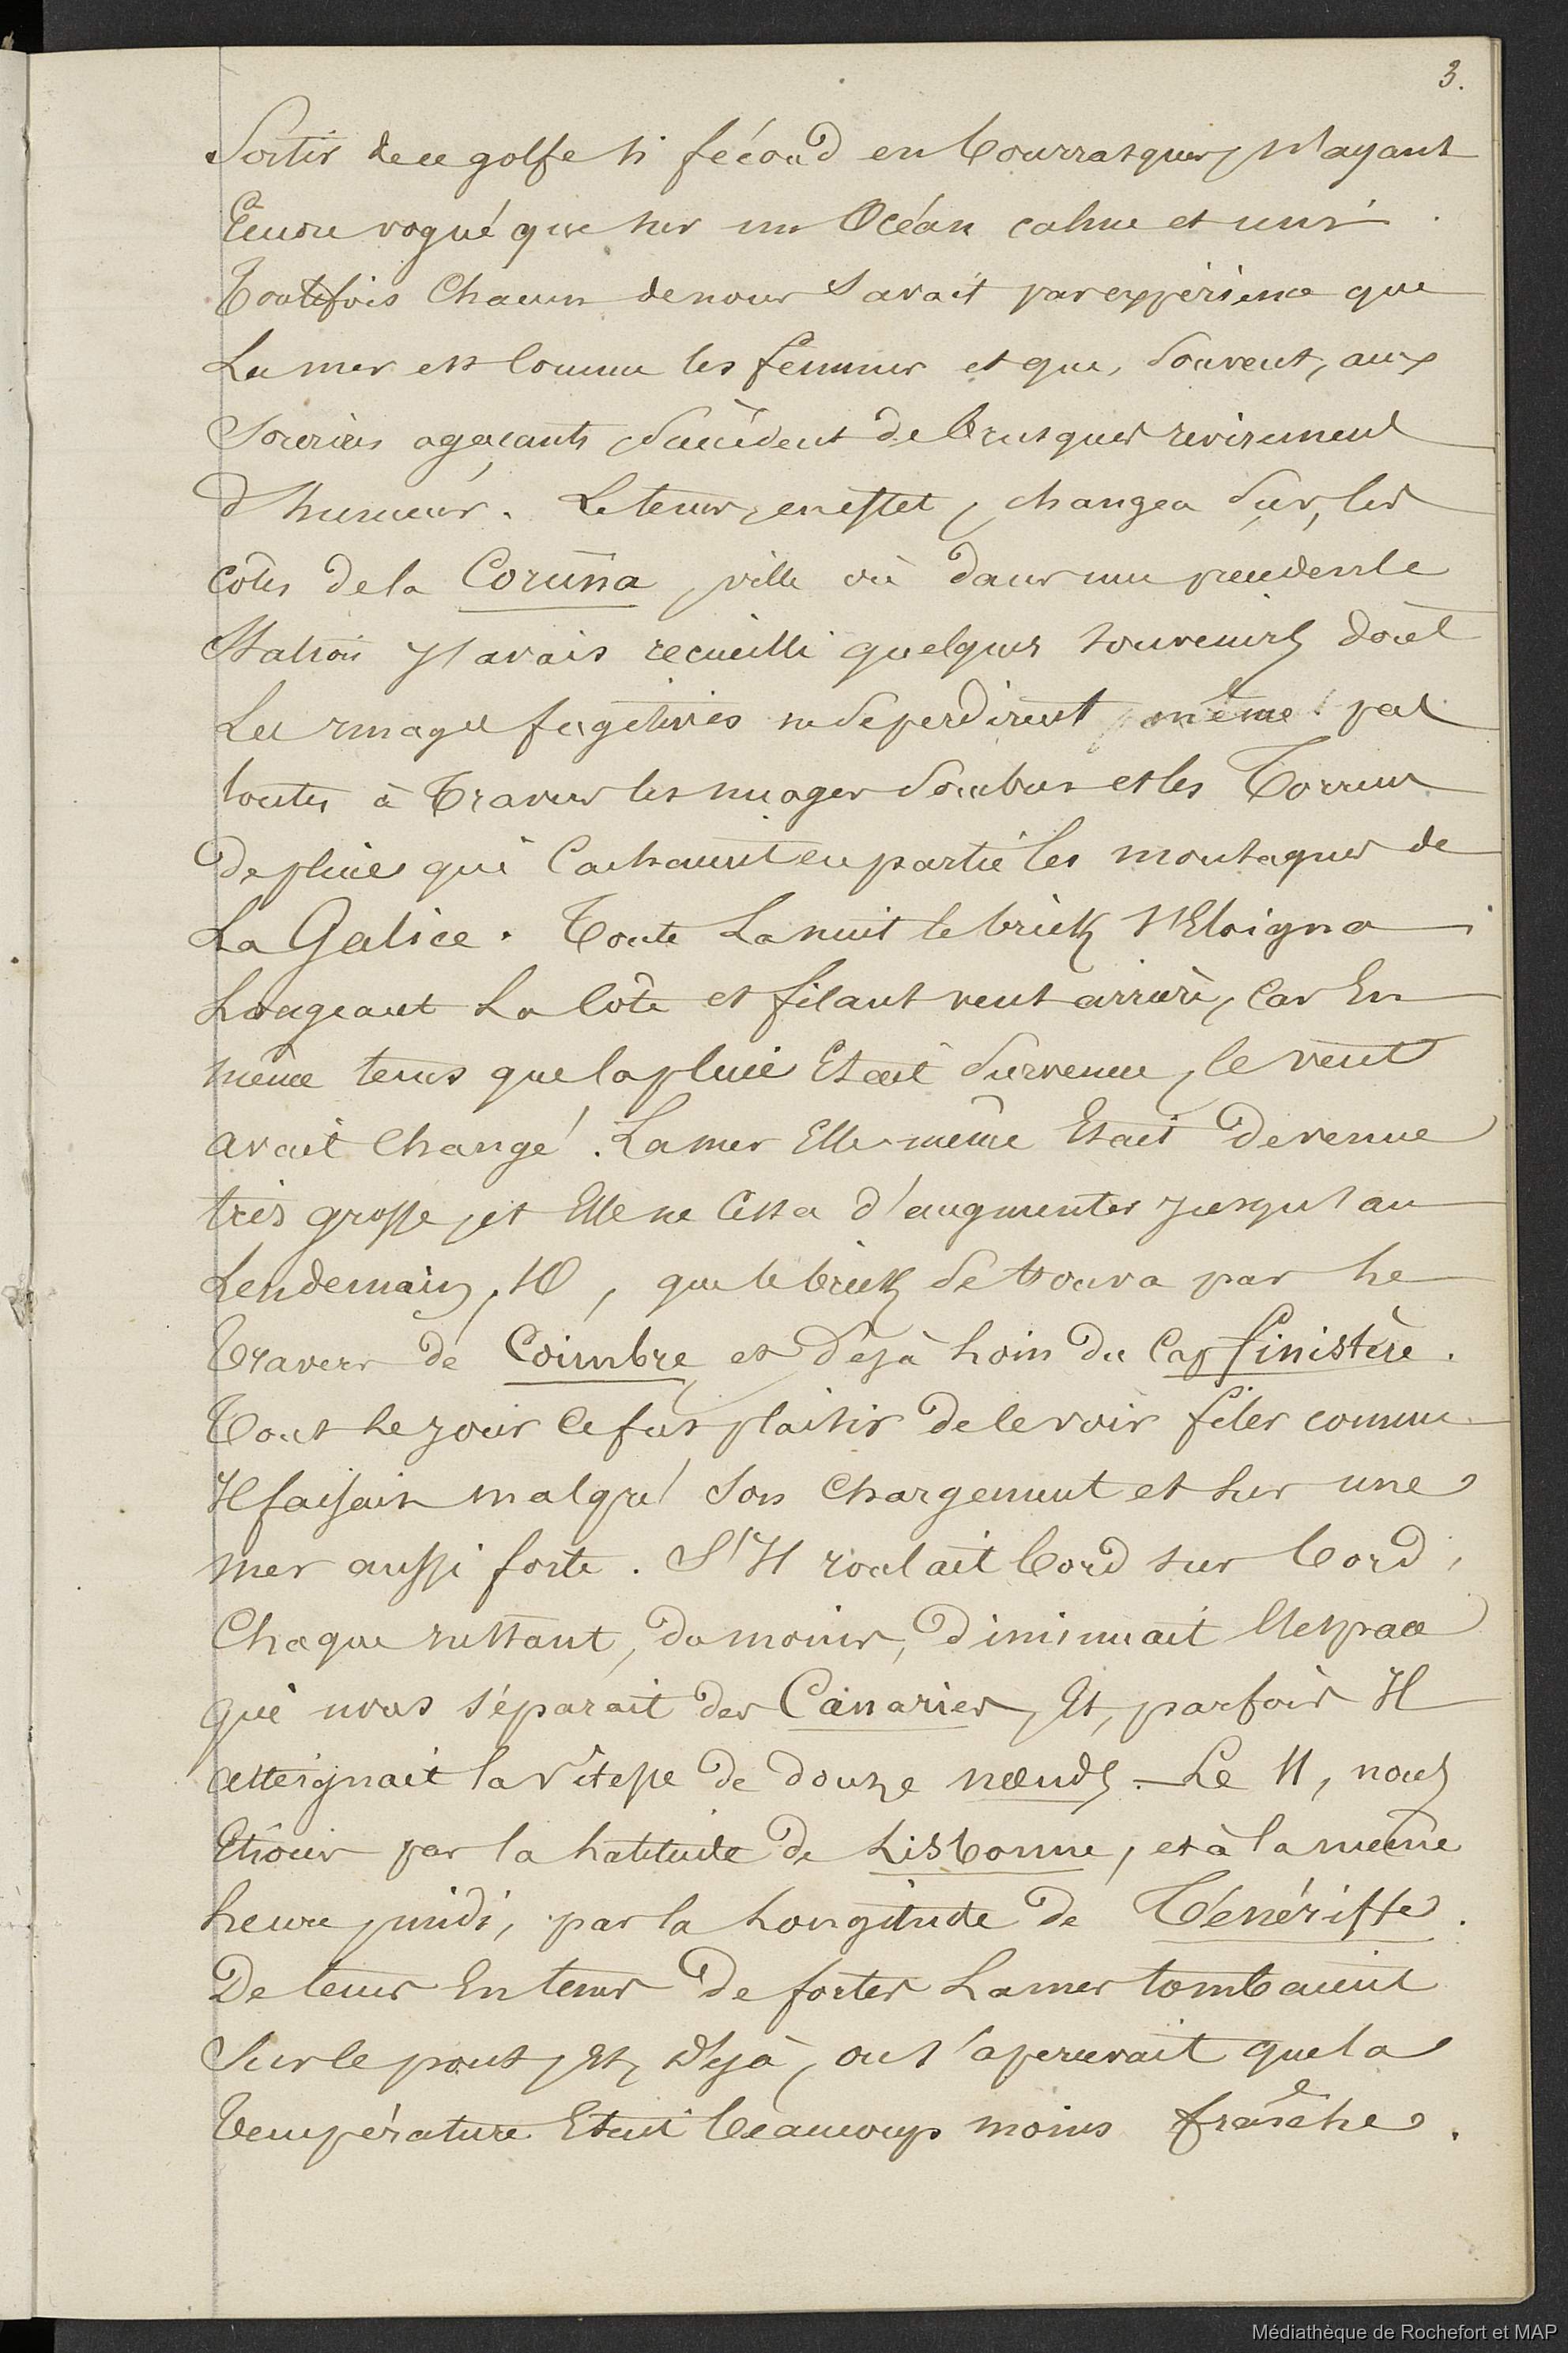 3.
Sortir de ce golfe si fécond en bourrasques, n'ayant
Encore vogué que sur un Océan calme et uni.
Toutefois Chacun de nous Savait par expérience que
La mer est Comme les femmes et que, Souvent, aux
Souriers agaçants Succèdent de brusques revirement
d'humeur. Le tems, en effet, changea Sur les
côtes de la Coruña, ville où dans une précédente
Station J'avais recueilli quelques souvenirs dont
Les images fugitives ne Se perdirent même pas
toutes à Travers les nuages Sombres et les Torrens
De pluie qui Cachaient en partie les montagnes de
La Galice. Toute La nuit le brick s'Eloigna
Longeant La Côte et filant vent arrière, Car En
même tems que la pluie Etait Survenue, le vent
avait Changé. La mer Elle-même Etait Devenue
très grosse, et Elle ne Cessa d'augmenter Jusqu'au
Lendemain, 10, que le brick Se trouva par Le
Travers de Coimbre et Déjà Loin du Cap finistère.
Tout Le jour Ce fut plaisir De le voir filer comme
Il faisait malgré Son Chargement et Sur une
mer aussi forte. S'Il roulait bord sur bord,
Chaque instant, du moins, Diminuait l'Espace
qui nous séparait des Canaries, Et, parfois Il
atteignait la vitesse De douze nœuds. — Le 11, nous
Etions par la Latitude De Lisbonne, et à la même
heure, midi, par la Longitude De Ténériffe.
De tems En tems De fortes Lames tombaient
Sur le pont, Et, Déjà, on s'apercevait que la
Température Etait beaucoup moins fraîche.
Médiathèque de Rochefort et MAP